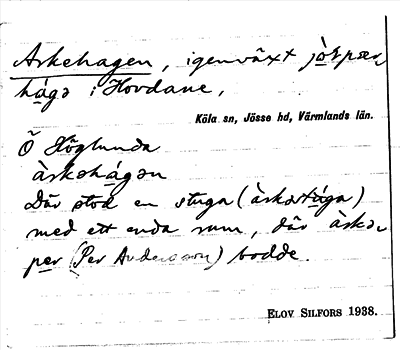 Askehagen, igenväxt jòrpær-
hágə i Hovdane,
Köla sn, Jösse hd, Värmlands län.
Ö Höglunda
àrskəhágən
Där stod en stuga (àrskəstúga)
med ett enda rum, där àrskə-
per (Per Andersson) bodde.
ELOV SILFORS 1938.